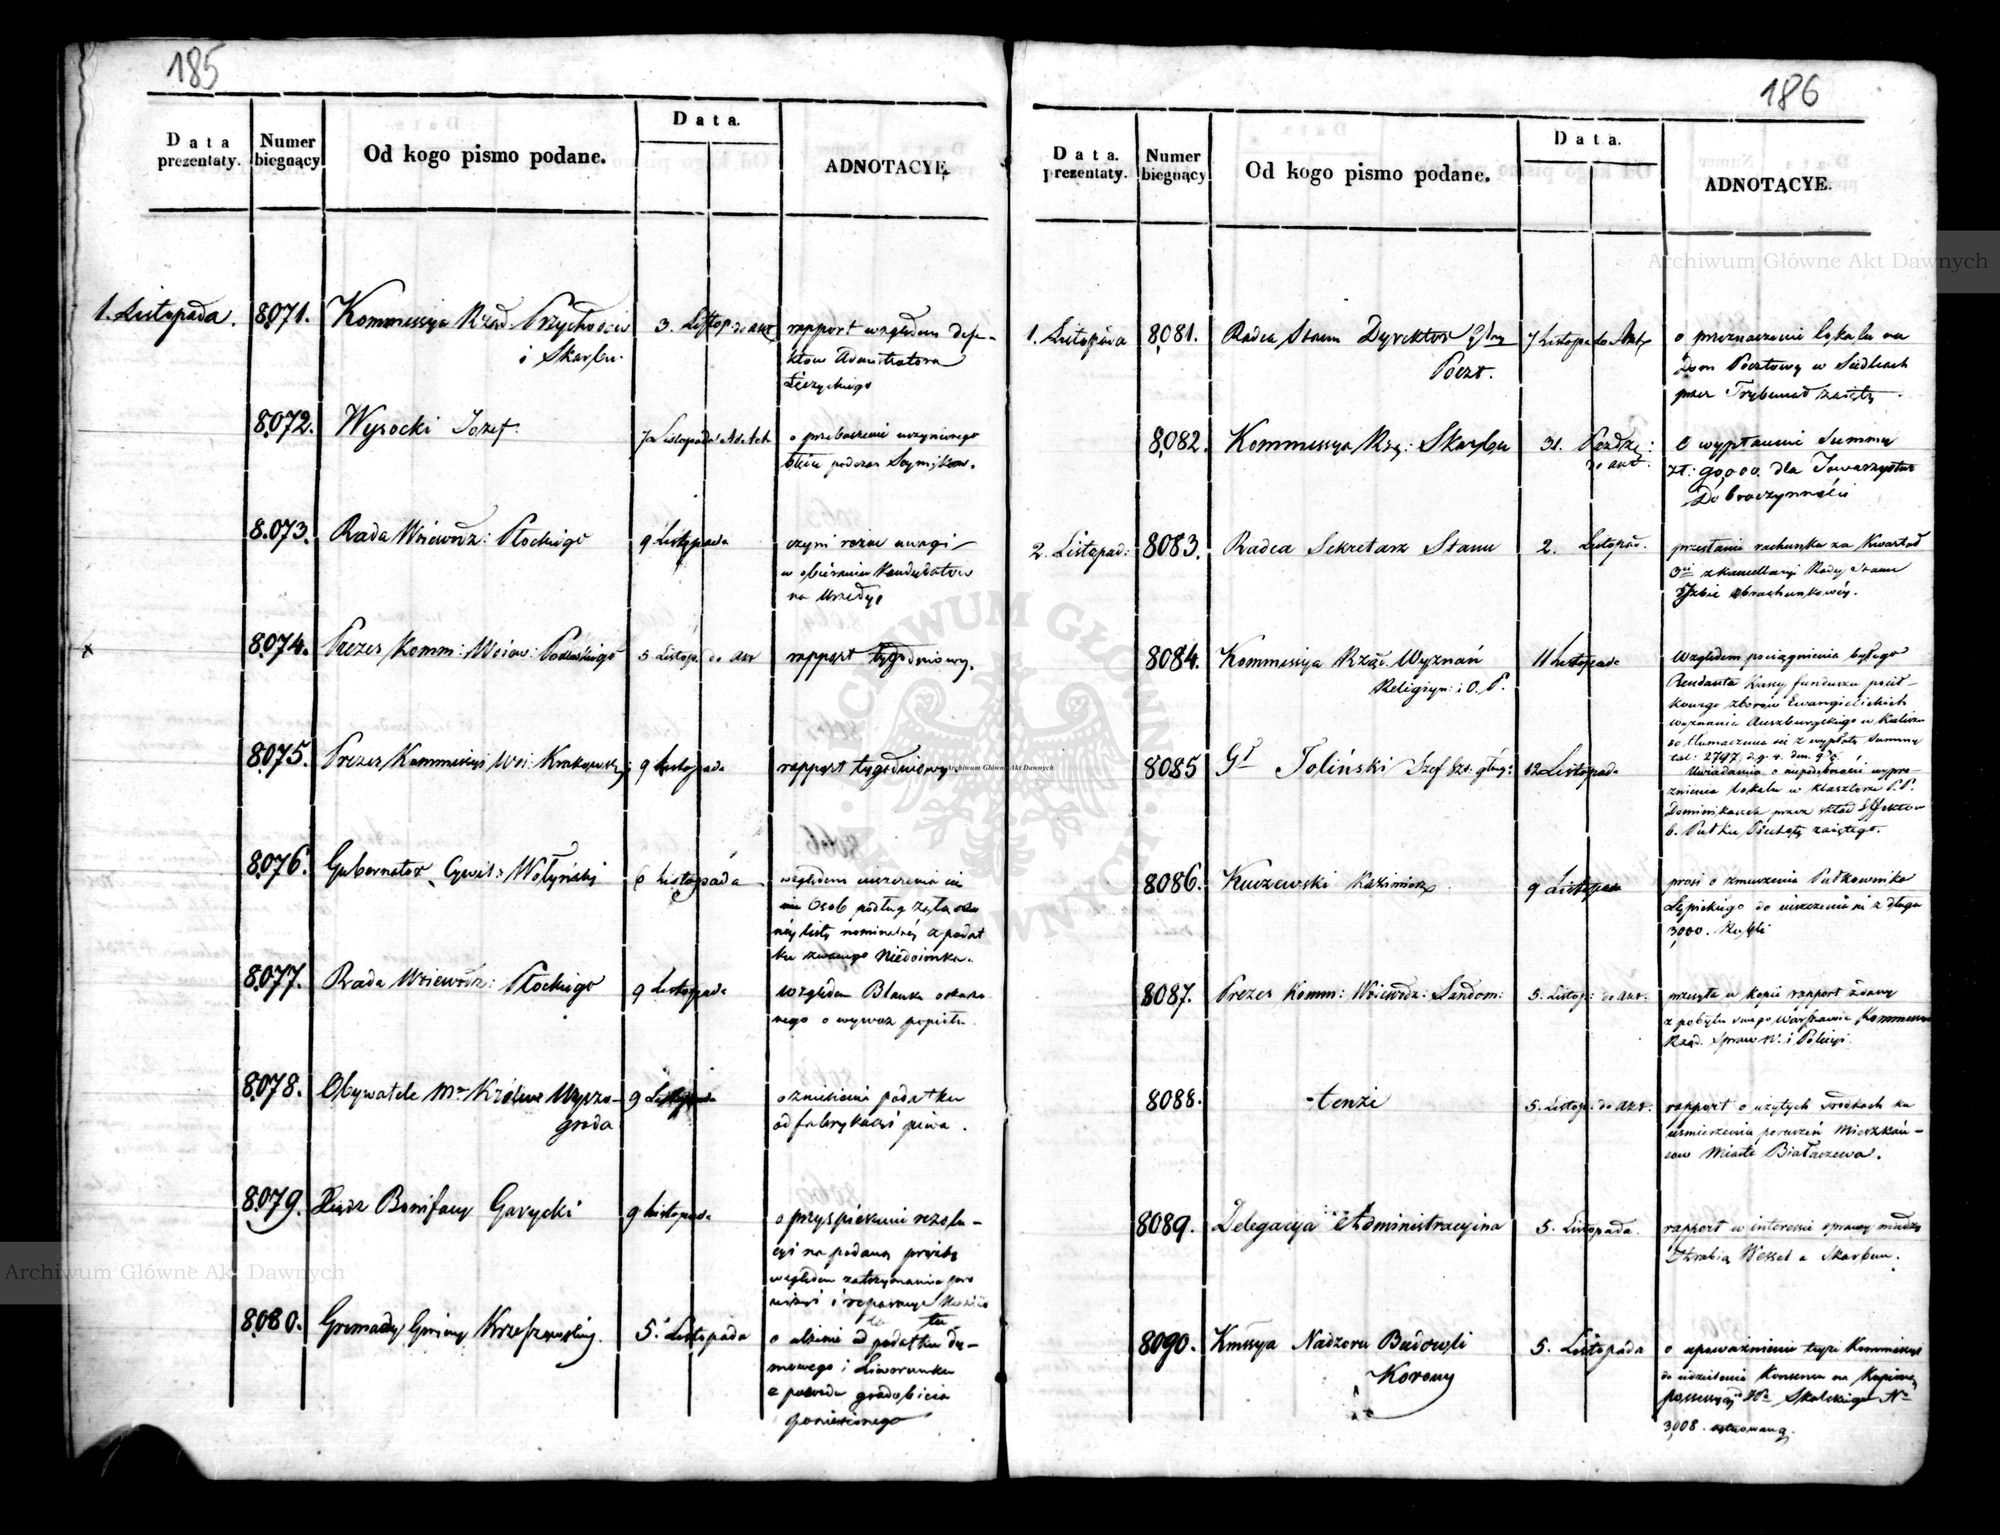 185
Data prezentaty.
Numer biegnący
Od kogo pismo podane.
Data.
ADNOTACYE.
1. Listopada.
8071.
Kommissya Rząd. Przychodów
i Skarbu.
3. Listop. do akt
rapport względem defe-
któw Administratora
Łęczyckiego
8072.
Wysocki Jozef.
Listopada
podczas Seymików.
8.073.
Rada Wojewódz: Płockiego
9 Listopada
czyni różne uwagi
w obieraniu Kandydatów
na Urzędy
x
8074.
Prezes Komm: Wojew: Podlaskiego
5 Listop. do akt
rapport tygodniowy.
8075.
Prezes Kommissyi Woi: Krakowsk:
9 Listopada
rapport tygodniowy
8076.
Gubernator Cywil: Wołyński
6 Listopada
względem
Osob podług
listy nominalnej z podat
ku zwanego Niedoimka.
8077.
Rada Wojewódz: Płockiego
9 Listopada
względem
nego o wywoz popiołu.
8078.
Obywatele Mta Królew: Wyszo-
groda
9 Listopada
o zniesienie podatku
od fabrykacyi piwa.
8079.
Xiądz Bonifacy Garycki
9 Listopada
o przyspieszenie rezolu-
cyi na podaną prozbę
względem zatrzymania
i reparacyi
8080.
Gromady Gminy
5. Listopada
od podatku dy-
mowego i Liwerunku
z powodu gradobicia
poniesionego
186
Data. prezentaty.
Numer biegnący
Od kogo pismo podane.
Data.
ADNOTACYE.
1. Listopada
8081.
Radca Stanu Dyrektor Głny
Poczt.
7 Listopa do Akt
o przeznaczenie lokalu na
Dom Pocztowy w Siedlcach
przez Trybunał zajęty
8082.
Kommissya Rzą: Skarbu
31. Paźdz:
do akt.
O wypłacenie Summy
zł: 90,000 dla Towarzystwa
Dobroczynności
2. Listopad:
8083.
Radca Sekretarz Stanu
2. Listopad.
przesłanie rachunku za Kwartał
3ci z kancellaryi Rady Stanu
Izbie Obrachunkowéy.
8084.
Kommissya Rząd. Wyznań
Religiyn: i O. P.
11 Listopada
Względem pociągnienia byłego
Rendanta Kassy funduszu
zborów Ewangielickich
wyznania Auszburgskiego w Kaliszu
do tłumaczenia się z wypłaty Summy
tal: 2797
8085
Gł Toliński Szef Szt. głwg:
12 Listopada
Uwiadamia o niepodobności wypró-
żnienia Lokalu w klasztorze P.P.
Dominikanek przez skład Effektów
6. Pułku Piechoty zajętego.
8086.
Kuczewski Kazimierz
9 Listopada
prosi o zmuszenie Pułkownika
do uiszczenia się z długu
3,000. Rubli
8087.
Prezes Komm: Wojewódz: Sandom:
5. Listop: do akt.
przesyła w kopii rapport zdany
z pobytu swego w Warszawie Kommissyi
Rząd. Spraw W. i Policyi.
8088.
-tenże
5. Listop. do akt.
rapport o użytych srodkach ku
uśmierzeniu poruszeń Mieszkań-
ców Miasta Białaczewa.
8089.
Delegacya Administracyina
5. Listopada.
rapport w interessie sprawy między
Hrabią Wessel a Skarbem.
8090.
Kmssya Nadzoru Budowli
Korony
5. Listopada
o upoważnienie tejże Kommissyi
do udzielenia Konsensu na Kupienie
possessyi Wo Skalskiego No
3,008.
Archiwum Główne Akt Dawnych
Archiwum Główne Akt Dawnych
Archiwum Główne Akt Dawnych
ARCHIWUM GŁÓWNE AKT DAWNYCH